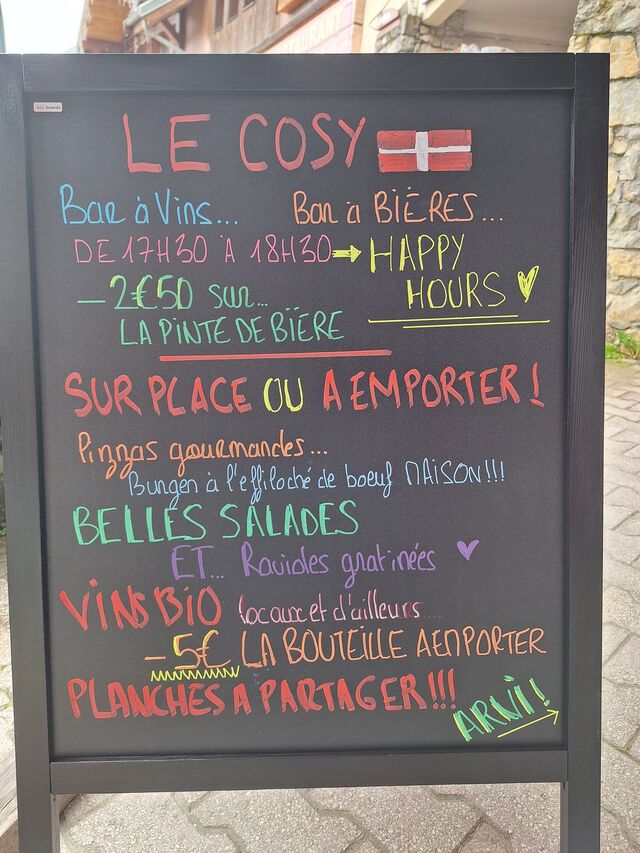 ALL boards
RESTAURANT
LE COSY
Bar à Vins... Bar à BIÈRES...
DE 17H30 À 18H30 → HAPPY
HOURS
- 2€50 sur...
LA PINTE DE BIÈRE
SUR PLACE OU A EMPORTER !
Pizzas gourmandes...
Burger à l'effiloché de boeuf MAISON!!!
BELLES SALADES
ET... Ravioles gratinées
VINS BIO locaux et d'ailleurs....
- 5€ LA BOUTEILLE A EMPORTER
PLANCHES A PARTAGER!!!
ARVI!